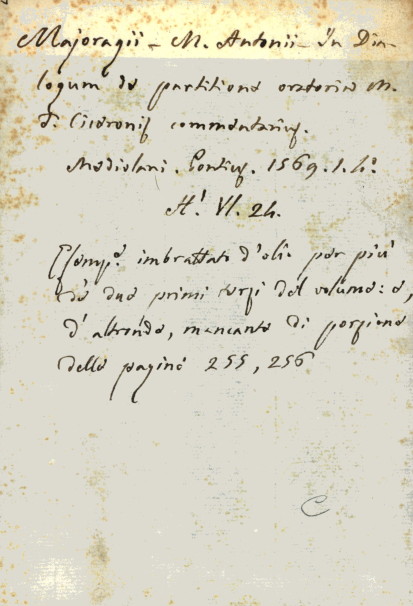 Majoragii - M. Antonii - in Dia-
logum de partitione oratoria M.
T. Ciceronis commentarius.
Mediolani. Pontius. 1569. 1. 4.º
H.! VI. 24.
Esemp.e imbrattato d'olio per più
de due primi terzi del volume: e,
d'altronde, mancante di porzione
delle pagine 255, 256
C